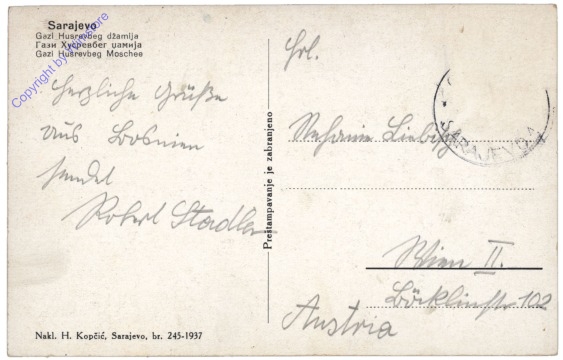 Sarajevo
Gazi Husrevbeg džamija
Гази Хусревбег џамија
Gazi Husrevbeg Moschee
Herzliche Grüße
aus Bosnien
sendet
Robert Stadler
Prestampavanje je zabranjeno
Frl.
Stefanie Liebig
SARAJEVO
Wien II.
Böcklinstr 102
Austria
Nakl. H. Kopčić, Sarajevo, br. 245-1937